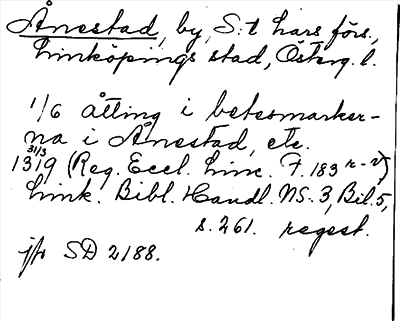 Ånestad, by, S:t Lars förs.,
Linköpings stad, Österg. l.
1/6 åtting i betesmarker-
na i Ånestad, etc.
31/3
1319 (Reg. Eccl. Linc. F. 183 r-v)
Link. Bibl. Handl. NS. 3, Bil. 5,
s. 261. regest.
jfr SD 2188.